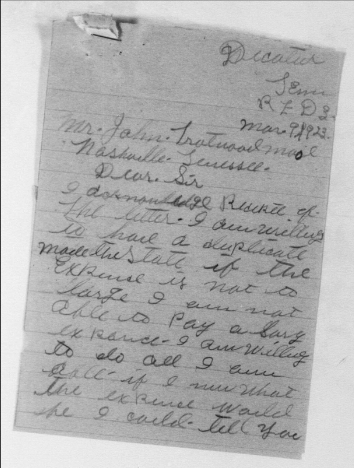 Decatur
Tenn
R F D 3
Mar 9 1923
Mr. John Trotwood Moore
Nashville Tenessee.
Dear Sir
I acknowledge Receite of
the letter. I am willing
to have a duplicate
made the State if the
Expense is not to
large I am not
able to Pay a larg
expance. I am willing
to do all I am
able if I new what
the expense would
be I could tell you